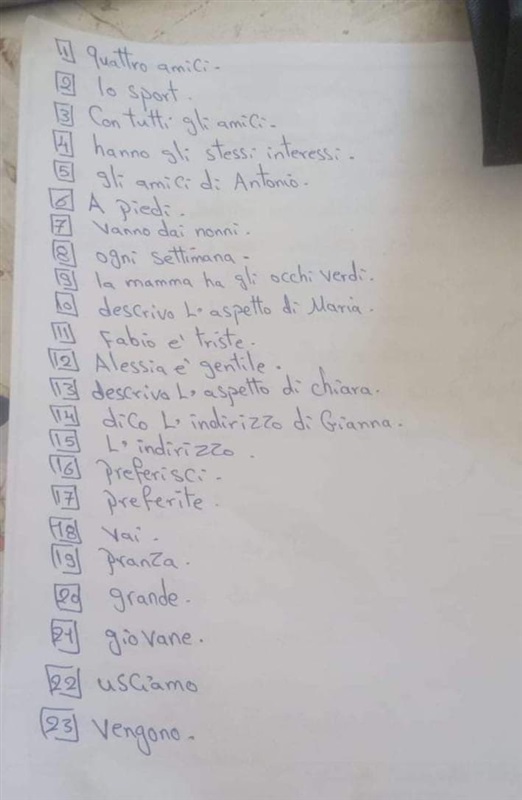 1 quattro amici.
2 lo sport.
3 Con tutti gli amici.
4 hanno gli stessi interessi.
5 gli amici di Antonio.
6 A piedi.
7 Vanno dai nonni.
8 ogni settimana.
9 la mamma ha gli occhi verdi.
10 descrivo L'aspetto di Maria.
11 Fabio e' triste.
12 Alessia e' gentile.
13 descrivo L'aspetto di chiara.
14 dico L'indirizzo di Gianna.
15 L'indirizzo.
16 preferisci.
17 preferite.
18 vai.
19 pranza.
20 grande.
21 giovane.
22 usciamo
23 vengono.